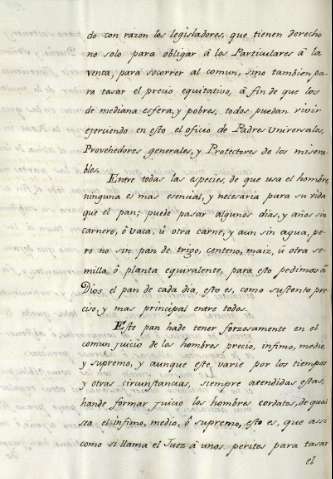 do con razon los legisladores, que tienen derecho
no solo para obligar â los Particulares â la
venta, para socorrer al comun, sino tambien pa
ra tasar el precio equitativo, â fin de que los
de mediana esfera, y pobres, todos puedan vivir
exerciendo en esto el oficio de Padres universales
Provehedores generales, y Protectores de los misera
bles.
Entre todas las especies, de que usa el hombre,
ninguna es mas esencial, y necesaria para su vida
que el pan; puede pasar algunos dias, y años sin
carnero, ô vaca, û otra carne, y aun sin agua, pe
ro no sin pan de trigo, centeno, maiz, û otra se
milla, ô planta equivalente, para esto pedimos â
Dios el pan de cada dia, esto es, como sustento pre
ciso, y mas principal entre todos.
Este pan hade tener forzosamente en el
comun juicio de los hombres precio, infimo, medio
y supremo, y aunque este varie por los tiempos
y otras circunstancias, siempre atendidas estas
hande formar juicio los hombres cordatos, de qual
sea el infimo, medio, ô supremo, esto es, que assi
como si llama el Juez â unos peritos para tasar
el